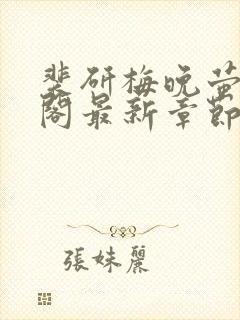 裴研梅晚萤
阁最新章节
張妹麗